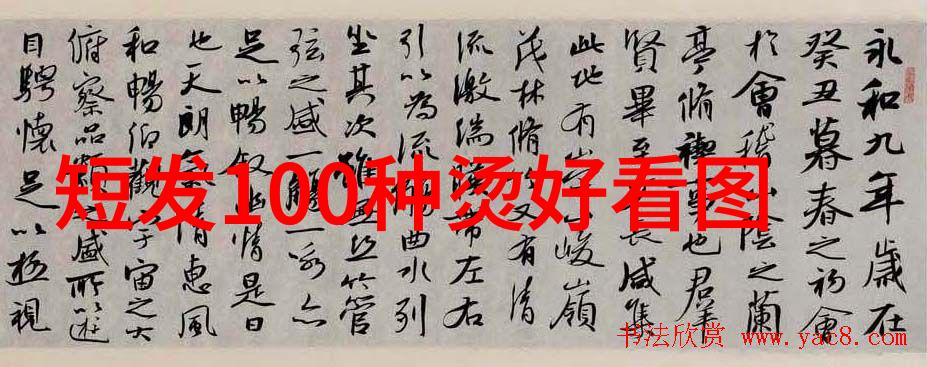 永和九年歲在
癸丑暮春之初會
於會稽山陰之蘭
亭脩禊事也羣
賢畢至少長咸集
此地有崇山峻嶺
茂林脩竹又有清
流激湍映帶左右
引以為流觴曲水列
坐其次雖無絲竹管
弦之盛一觴一詠亦
足以暢敘幽情是日
也天朗氣清惠風
和暢仰觀宇宙之大
俯察品類之盛所以遊
目騁懷足以極視
短发100种烫好看图
书法欣赏 www.yac8.com